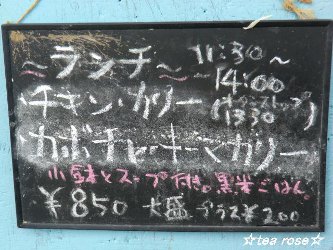 ~ランチ~ 11:30~
14:00
チキン・カリー (オーダーストップ 13:30)
カボチャ・キーマカリー
小鉢とスープ付。黒米ごはん。
¥850 大盛プラス¥200
☆tea rose☆